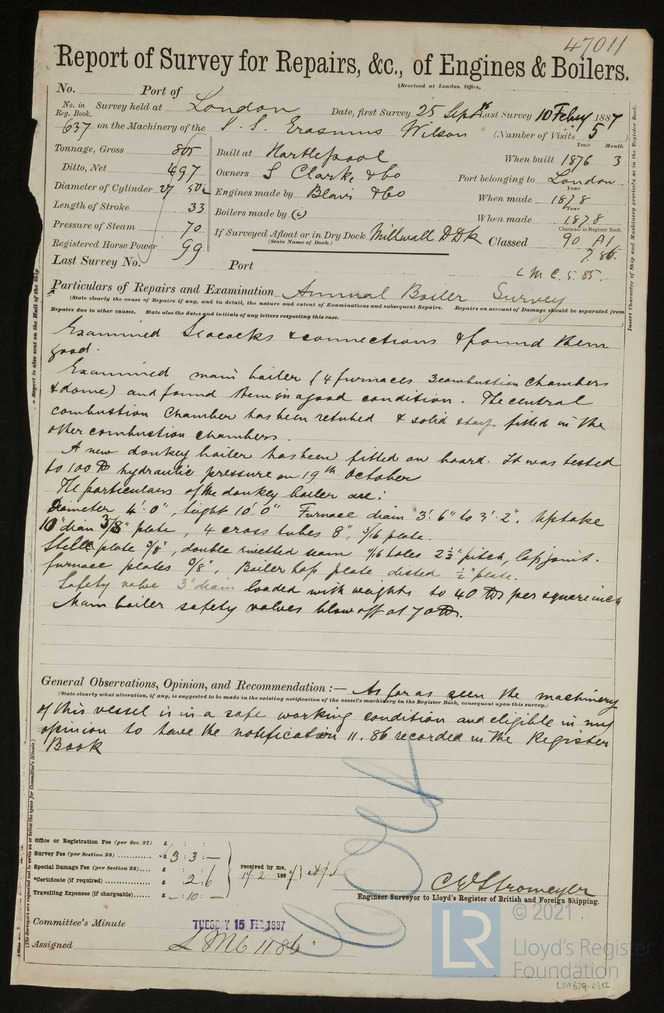 47011
Report of Survey for Repairs, &c., of Engines & Boilers.
(Received at London Office,
No. Port of
No. in Reg. Book. Survey held at London Date, first Survey 25 Sept Last Survey 10 Feby 1887
637 on the Machinery of the S. S. Erasmus Wilson (Number of Visits 5
Tonnage, Gross 865
Ditto, Net 497
Diameter of Cylinder 27
Length of Stroke 33
Pressure of Steam 70
Registered Horse Power 99
Built at Hartlepool When built 1876 3
Year Month
Owners S Clarke & Co Port belonging to London
Engines made by Blair & Co When made 1878
Year
Boilers made by (c) When made 1878
Year
If Surveyed Afloat or in Dry Dock Millwall D Dk Classed 90 A1
(State Name of Dock.)
Character in Register Book.
7.86.
Last Survey No. Port
L M C 5.85.
Particulars of Repairs and Examination Annual Boiler Survey
(State clearly the cause of Repairs if any, and in detail, the nature and extent of Examinations and subsequent Repairs. Repairs on account of Damage should be separated from
Repairs due to other causes. State also the dates and initials of any letters respecting this case.
Examined Seacocks & connections & found them
good.
Examined main boiler (4 furnaces 3 combustion chambers
& dome) and found them in a good condition. The central
combustion chamber has been retubed & solid stays fitted in the
other combustion chambers.
A new donkey boiler has been fitted on board. It was tested
to 100 lb hydraulic pressure on 19th October
The particulars of the donkey boiler are:
Diameter 4'.0", height 10'.0" Furnace diam 3'.6" to 3'.2". Uptake
10" diam 3/8" plate, 4 cross tubes 8", 5/16 plate.
Shell plate 3/8", double rivetted seam 11/16 holes 2 1/2" pitch, lap joint.
furnace plates 3/8", Boiler top plate dished 1/2" plate.
Safety valve 3" diam loaded with weights to 40 lbs per square inch
Main boiler safety valves blow off at 70 lbs.
General Observations, Opinion, and Recommendation :— As far as seen the machinery
(State clearly what alteration, if any, is suggested to be made in the existing notification of the vessel's machinery in the Register Book, consequent upon this survey.)
of this vessel is in a safe working condition and eligible in my
opinion to have the notification 11.86 recorded in the Register
Book
Office or Registration Fee (per Sec. 27) £ : :
Survey Fee (per Section 28) £ 3 : 3 : —
Special Damage Fee (per Section 28) £ : :
*Certificate (if required) £ : 2 : 6
Travelling Expenses (if chargeable) £ — : 10 : —
received by me,
17/2 1887
C E Stromeyer
Engineer Surveyor to Lloyd's Register of British and Foreign Shipping.
Committee's Minute TUESDAY 15 FEB 1887
Assigned L M C 11.86.
© 2021
LR
Lloyd's Register
Foundation
LON679-0312
Insert Character of Ship and Machinery precisely as in the Register Book.